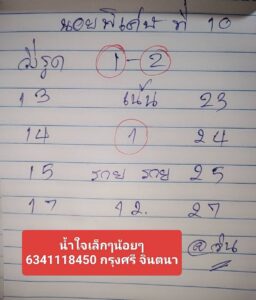 นอยพิเศษ ที่ 10
มีรูด 1-2
13 เน้น 23
14 1 24
15 รวย รวย 25
17 12. 27
@จีน
น้ำใจเล็กๆน้อยๆ
6341118450 กรุงศรี จินตนา